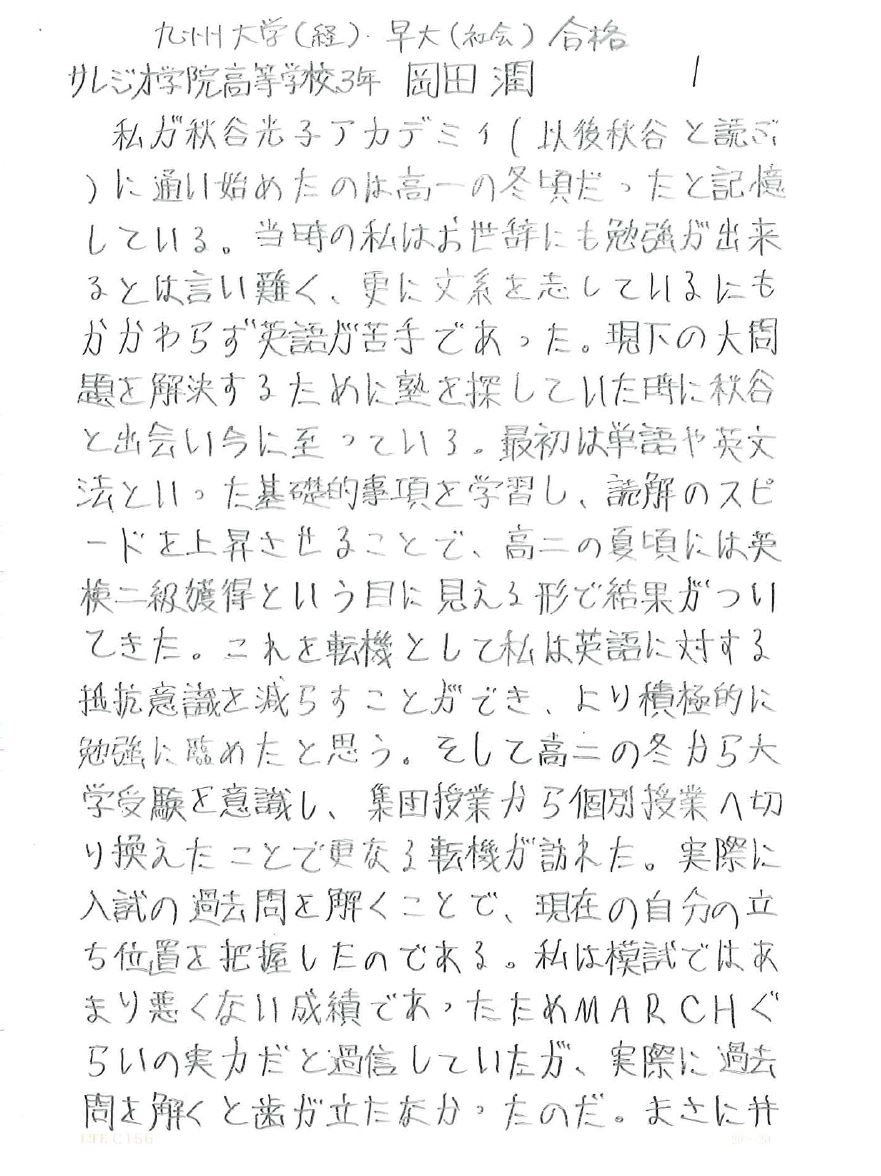 九州大学(経)・早大(社会)合格
サレジオ学院高等学校3年 岡田 潤 1
私が秋谷光子アカデミィ(以後秋谷と読ぶ
)に通い始めたのは高一の冬頃だったと記憶
している。当時の私はお世辞にも勉強が出来
るとは言い難く、更に文系を志しているにも
かかわらず英語が苦手であった。現下の大問
題を解決するために塾を探していた時に秋谷
と出会い今に至っている。最初は単語や英文
法といった基礎的事項を学習し、読解のスピ
ードを上昇させることで、高二の夏頃には英
検二級獲得という目に見える形で結果がつい
てきた。これを転機として私は英語に対する
抵抗意識を減らすことができ、より積極的に
勉強に臨めたと思う。そして高二の冬から大
学受験を意識し、集団授業から個別授業へ切
り換えたことで更なる転機が訪れた。実際に
入試の過去問を解くことで、現在の自分の立
ち位置を把握したのである。私は模試ではあ
まり悪くない成績であったためMARCHぐ
らいの実力だと過信していたが、実際に過去
問を解くと歯が立たなかったのだ。まさに井